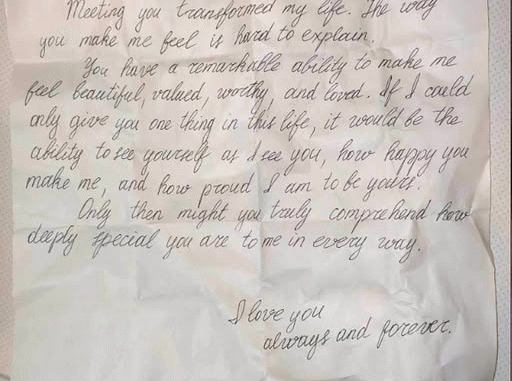 Meeting you transformed my life. The way
you make me feel is hard to explain.
You have a remarkable ability to make me
feel beautiful, valued, worthy, and loved. If I could
only give you one thing in this life, it would be the
ability to see yourself as I see you, how happy you
make me, and how proud I am to be yours.
Only then might you truly comprehend how
deeply special you are to me in every way.
I love you
always and forever.